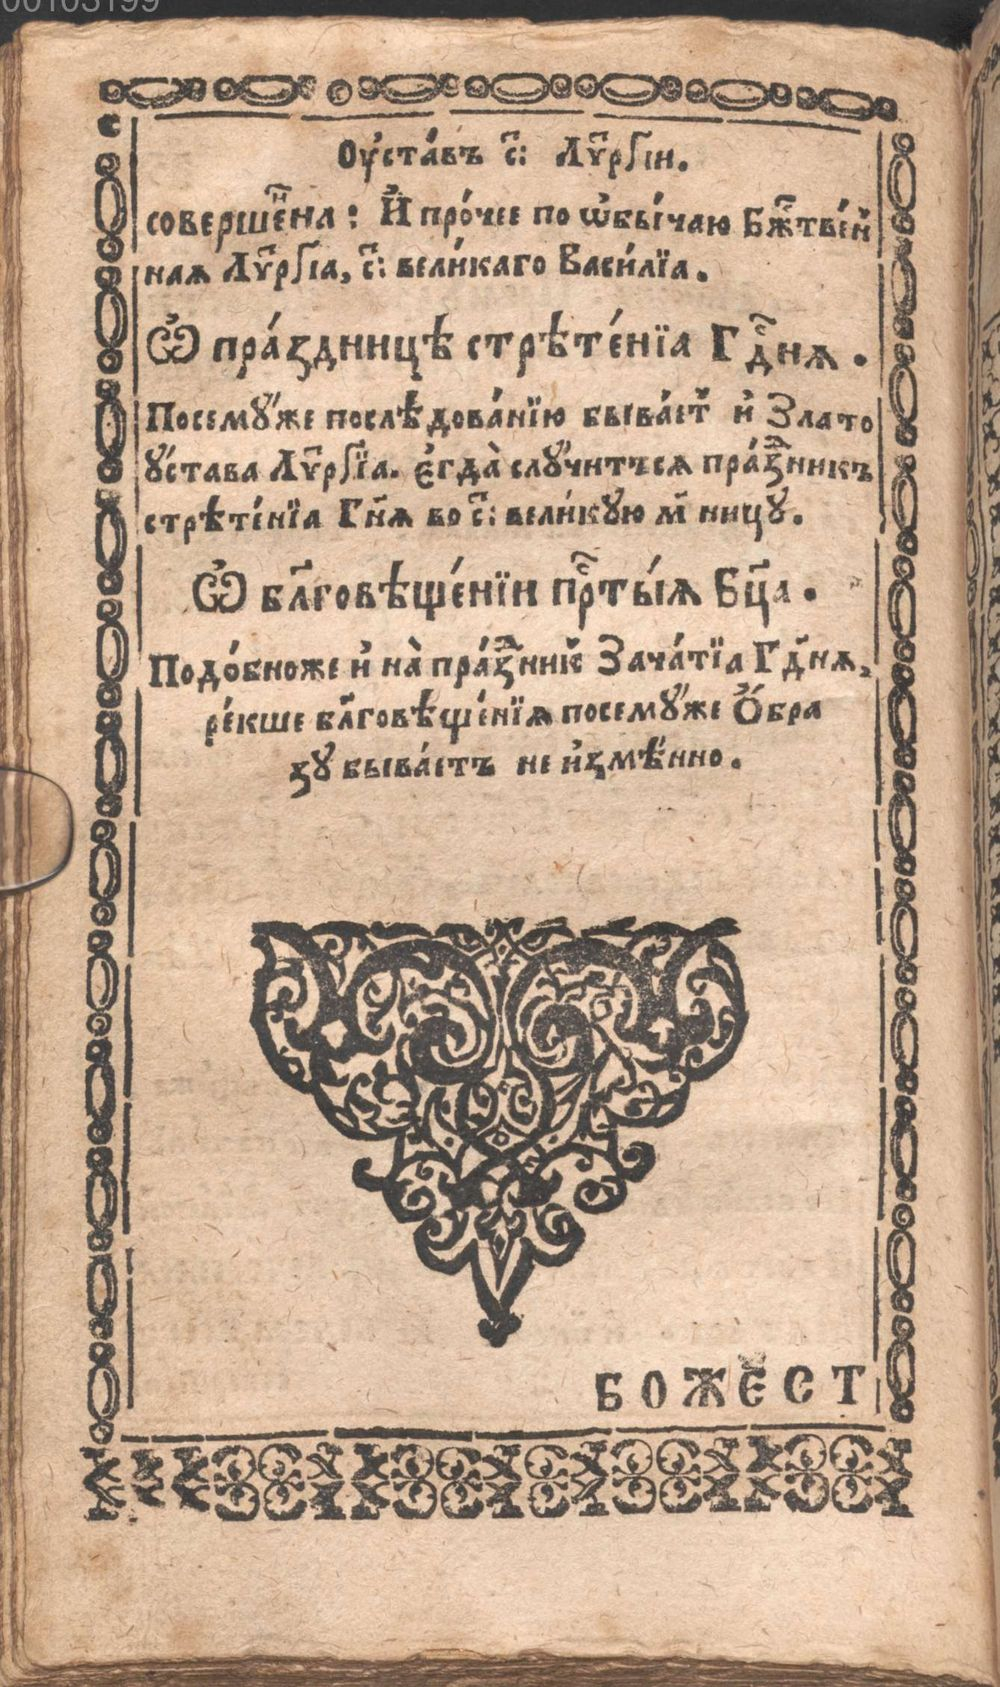 00103199
Оуста́въ с҃: Лѵ҃ргіи.
соверше҃на: И҆ про́чее по ѡ҆бы́чаю Бж҃тве́н
ная Лѵ҃ргіа, с҃: вели́каго Васи́лїа.
Ѽ пра́здницѣ стрѣте́нїа Гдⷭ҇ня.
Посему́же послѣдова́нїю быва́ет и҆ Злато
у́става Лѵ҃ргїа. є҆гда̀ слу́читъся пра́здникъ
стрѣте́нїа Гн҃я во с҃: вели́кую м҃ ницу.
Ѽ бл҃говѣще́нїи прⷭ҇ты́я Бц҃а.
Подо́бноже и҆ на̀ пра́здник Зача́тїа Гд҃ня,
ре́кше бл҃говѣще́нїя посему́же Ѻ҆́бра
зу быва́етъ не и҆змѣ́нно.
БОЖЕСТ